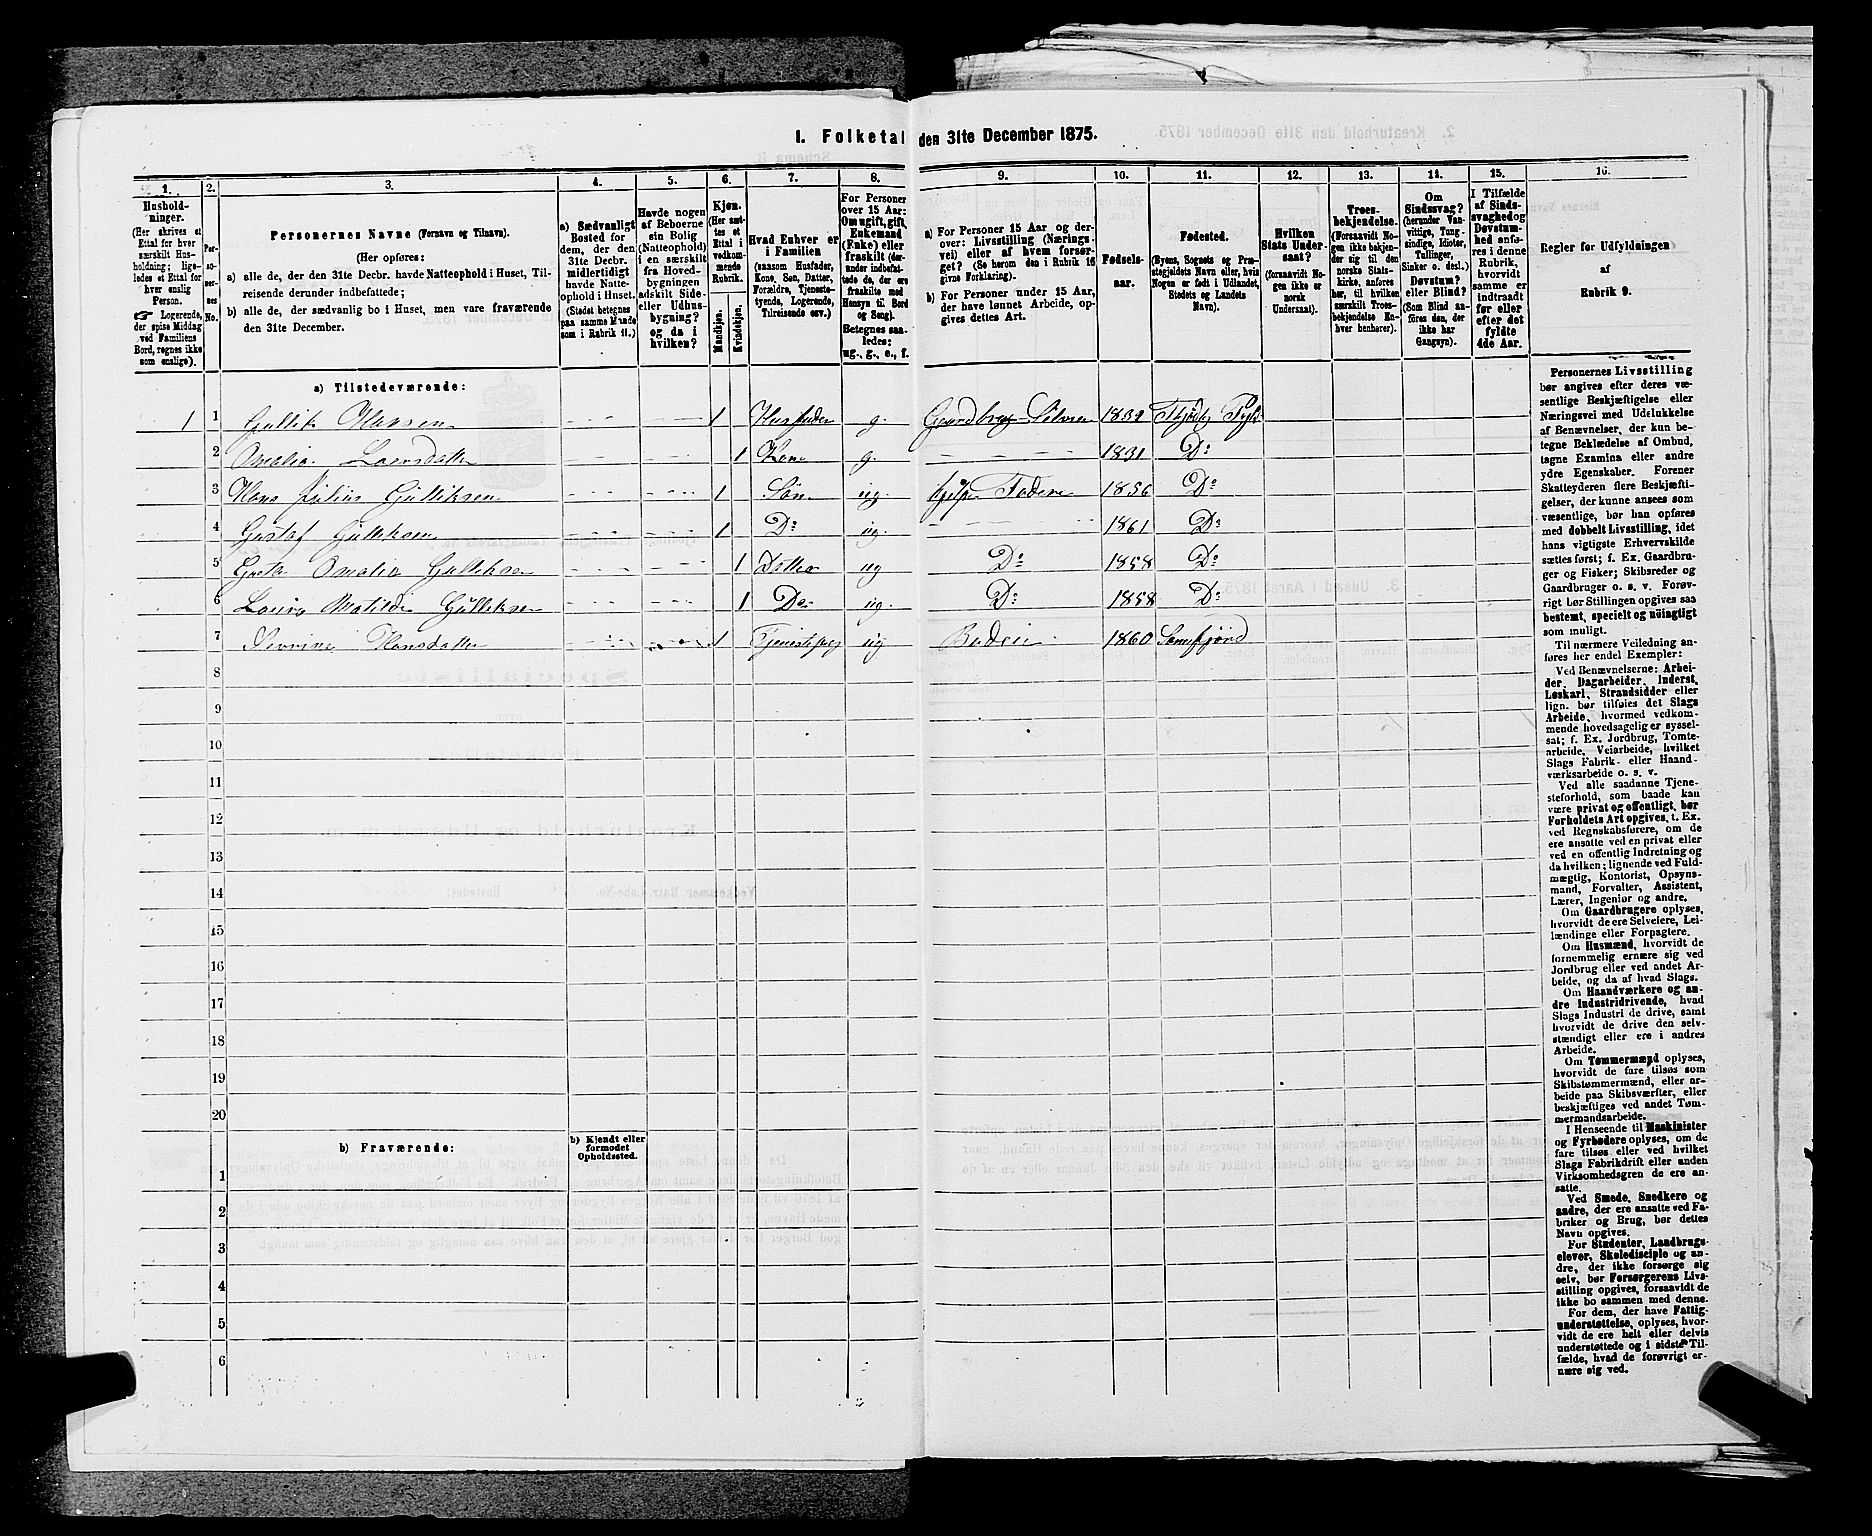 1. Folketal den 31te December 1875.
1.
2.
3.
4.
5.
6.
7.
8.
9.
10.
11.
12.
13.
14.
15.
16.
Hushold-
ninger.
(Her skrives et
Ettal for hver
særskilt Hus-
holdning; lige-
ledes et Ettal for
hver enslig
Person.
☞ Logerende,
der spise Middag
ved Familiens
Bord, regnes ikke
som enslige).
Per-
so-
ner-
nes
No.
Personernes Navne (Fornavn og Tilnavn).
(Her opføres:
a) alle de, der den 31te Decbr. havde Natteophold i Huset, Til-
reisende derunder indbefattede;
b) alle de, der sædvanlig bo i Huset, men vare fraværende
den 31te December.
a) Sædvanligt
Bosted for
dem, der den
31te Decbr.
midlertidigt
havde Natte-
ophold i Huset.
(Stedet betegnes
paa samme Maade
som i Rubrik 11.)
Havde nogen
af Beboerne
sin Bolig
(Natteophold)
i en særskilt
fra Hoved-
bygningen
adskilt Side-
eller Udhus-
bygning?
og da i
hvilken?
Kjøn.
(Her sæt-
tes et
Ettal i
vedkom-
mende
Rubrik.
Mandkjøn.
Kvindekjøn.
Hvad Enhver er
i Familien
(saasom Husfader,
Kone, Søn, Datter,
Forældre, Tjeneste-
tyende, Logerende,
Tilreisende osv.)
For Personer
over 15 Aar:
Om ugift, gift,
Enkemand
(Enke) eller
fraskilt (der-
under indbefat-
tede de, der ere
fraskilte med
Hensyn til Bord
og Seng).
Betegnes saa-
ledes:
ug., g., e., f.
a) For Personer 15 Aar og der-
over: Livsstilling (Nærings-
vei) eller af hvem forsør-
get? (Se herom den i Rubrik 16
givne Forklaring).
b) For Personer under 15 Aar,
der have lønnet Arbeide, op-
gives dettes Art.
Fødsels-
aar.
Fødested.
(Byens, Sognets og Præ-
stegjeldets Navn eller, hvis
Nogen er født i Udlandet,
Stedets og Landets
Navn).
Hvilken
Stats Under-
saat?
(forsaavidt No-
gen ikke er
norsk
Undersaat).
Troes-
bekjendelse.
(Forsaavidt No-
gen ikke bekjen-
der sig til den
norske Stats-
kirke, anføres
her, til hvilken
særskilt Troes-
bekjendelse En-
hver henhører).
Om
Sindssvag?
(herunder Van-
vittige, Tung-
sindige, Idioter,
Tullinger,
Sinker o. desl.)
Døvstum?
eller Blind?
(Som Blind an-
føres den, der
ikke har
Gangsyn).
I Tilfælde
af Sinds-
svaghed og
Døvstum-
hed anfø-
res i denne
Rubrik,
hvorvidt
samme er
indtraadt
før eller
efter det
fyldte
4de Aar.
Regler for Udfyldningen
af
Rubrik 9.
a) Tilstedeværende:
1 1 Gullik Hansen - - - - 1 Husfader g. Gaardbrug Selveier 1832
2 Amalia Larsdatter - - - - 1 Kone g. - - - 1831 Do
3 Hans Julius Gulliksen - - - - 1 Søn ug. hjelper Faderen 1856 Do
4 Gustaf Gulliksen 1 Do ug. - - - 1861 Do
5 Amalia Gulliksen - - - - 1 Datter ug Do 1858 Do
6 Laura Matilde Gulliksen - - - - 1 Do ug. Do 1858 Do
7 Severine Hansdatter - - - - 1 ug 1860
8
9
10
11
12
13
14
15
16
17
18
19
20
b) Fraværende:
b) Kjendt eller
formodet
Opholdssted.
1
2
3
4
5
6
Personernes Livsstilling
bør angives efter deres væ-
sentlige Beskjæftigelse eller
Næringsvei med Udelukkelse
af Benævnelser, der kun be-
tegne Beklædelse af Ombud,
tagne Examina eller andre
ydre Egenskaber. Forener
Skatteyderen flere Beskjæfti-
gelser, der kunne ansees som
væsentlige, bør han opføres
med dobbelt Livsstilling, idet
hans vigtigste Erhvervskilde
sættes først; f. Ex. Gaardbru-
ger og Fisker; Skibsreder og
Gaardbruger o. s. v. Forøv-
rigt bør Stillingen opgives saa
bestemt, specielt og nøiagtigt
som muligt.
Til nærmere Veiledning an-
føres her endel Exempler:
Ved Benævnelserne: Arbei-
der, Dagarbeider, Inderst,
Løskarl, Strandsidder eller
lign. bør tilføies det Slags
Arbeide, hvormed vedkom-
mende hovedsagelig er syssel-
sat; f. Ex. Jordbrug, Tomte-
arbeide, Veiarbeide, hvilket
Slags Fabrik- eller Haand-
værksarbeide o. s. v.
Ved alle saadanne Tjene-
steforhold, som baade kan
være privat og offentligt, bør
Forholdets Art opgives, t. Ex.
ved Regnskabsførere, om de
ere ansatte ved en privat eller
ved en offentlig Indretning og
da hvilken; lignende ved Fuld-
mægtig, Kontorist, Opsyns-
mand, Forvalter, Assistent,
Lærer, Ingeniør og andre.
Om Gaardbrugere oplyses,
hvorvidt de ere Selveiere, Lei-
lændinge eller Forpagtere.
Om Husmænd, hvorvidt de
fornemmelig ernære sig ved
Jordbrug eller ved andet Ar-
beide, og da af hvad Slags.
Om Haandværkere og an-
dre Industridrivende, hvad
Slags Industri de drive, samt
hvorvidt de drive den selv-
stændigt eller ere i andres
Arbeide.
Om Tømmermænd oplyses,
hvorvidt de fare tilsøs som
Skibstømmermænd, eller ar-
beide paa Skibsværfter, eller
beskjæftiges ved andet Tøm-
mermandsarbeide.
I Henseende til Maskinister
og Fyrbødere oplyses, om de
fare tilsøs eller ved hvilket
Slags Fabrikdrift eller anden
Virksomhedsgren de ere an-
satte.
Ved Smede, Snedkere og
andre, der ere ansatte ved Fa-
briker og Brug, bør dettes
Navn opgives.
For Studenter, Landbrugs-
elever, Skoledisciple og an-
dre, der ikke forsørge sig
selv, bør Forsørgerens Livs-
stilling opgives, forsaavidt de
ikke bo sammen med denne.
For dem, der have Fattig-
understøttelse, oplyses, hvor-
vidt de ere helt eller delvis
understøttede og i sidste Til-
fælde, hvad de forøvrigt er-
nære sig ved.